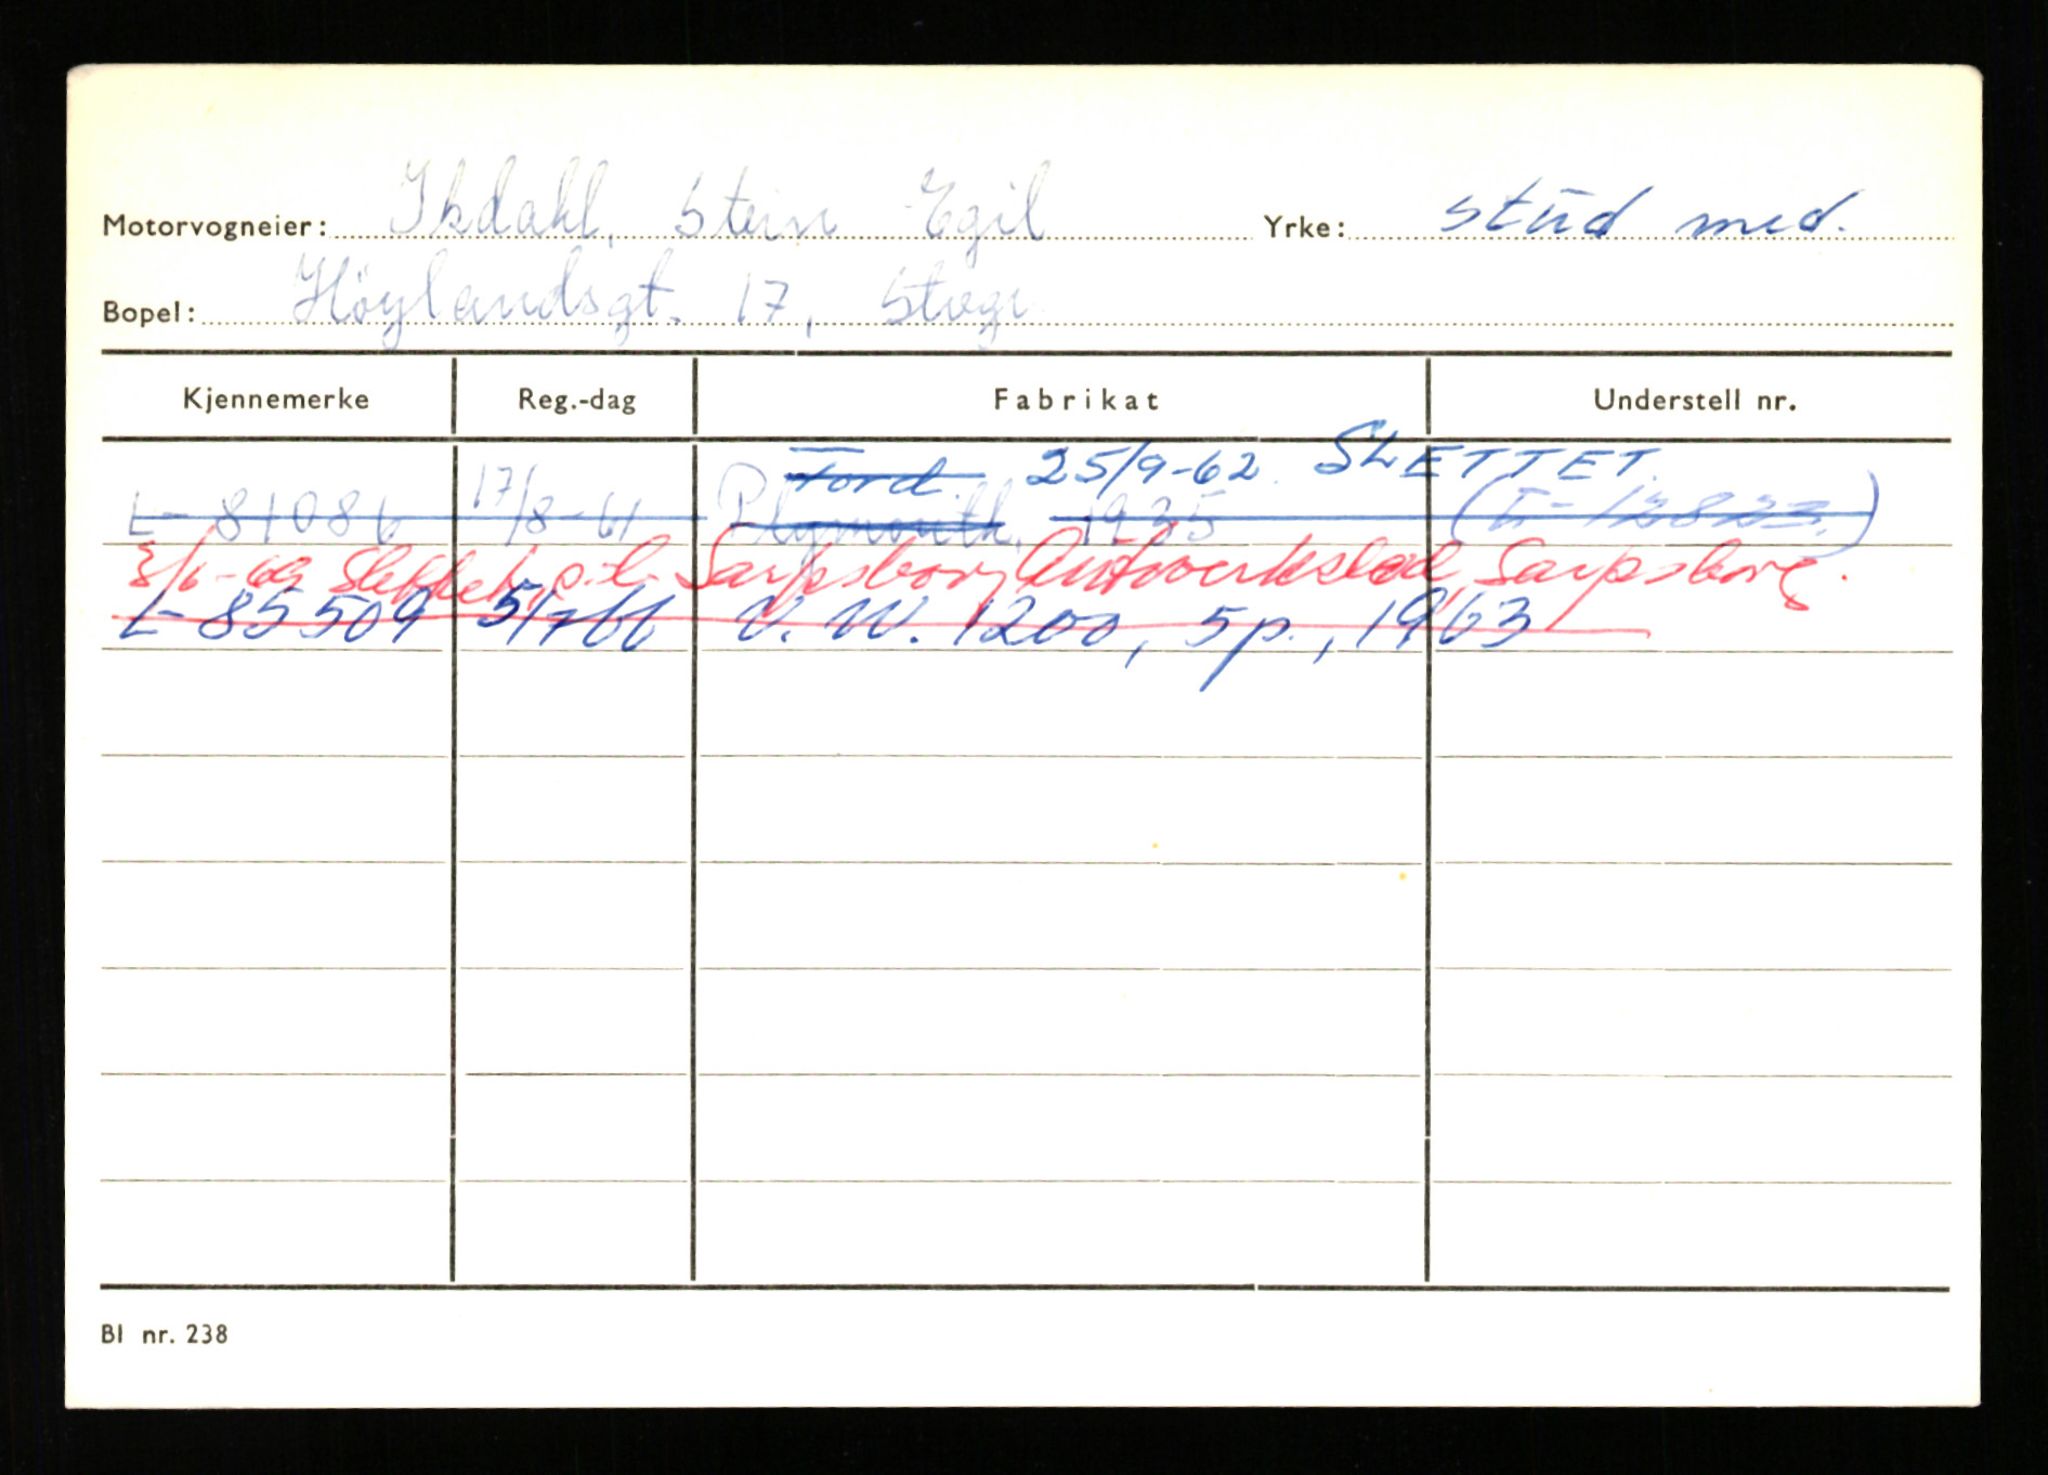 Motorvogneier: Ikdahl, Stein Egil Yrke: stud med.
Bopel: Höylandsgt. 17, Stvgr
Kjennemerke Reg.-dag Fabrikat Understell nr.
Ford. 25/9-62. SLETTET.
L-81086 17/8-61 Plymouth, 1935 (L-12823)
3/6-69 Slettet, p.t. Sarpsborg Autoverksted, Sarpsborg.
L-85509 5/7-66 V.W. 1200, 5p., 1963
Bl nr. 238